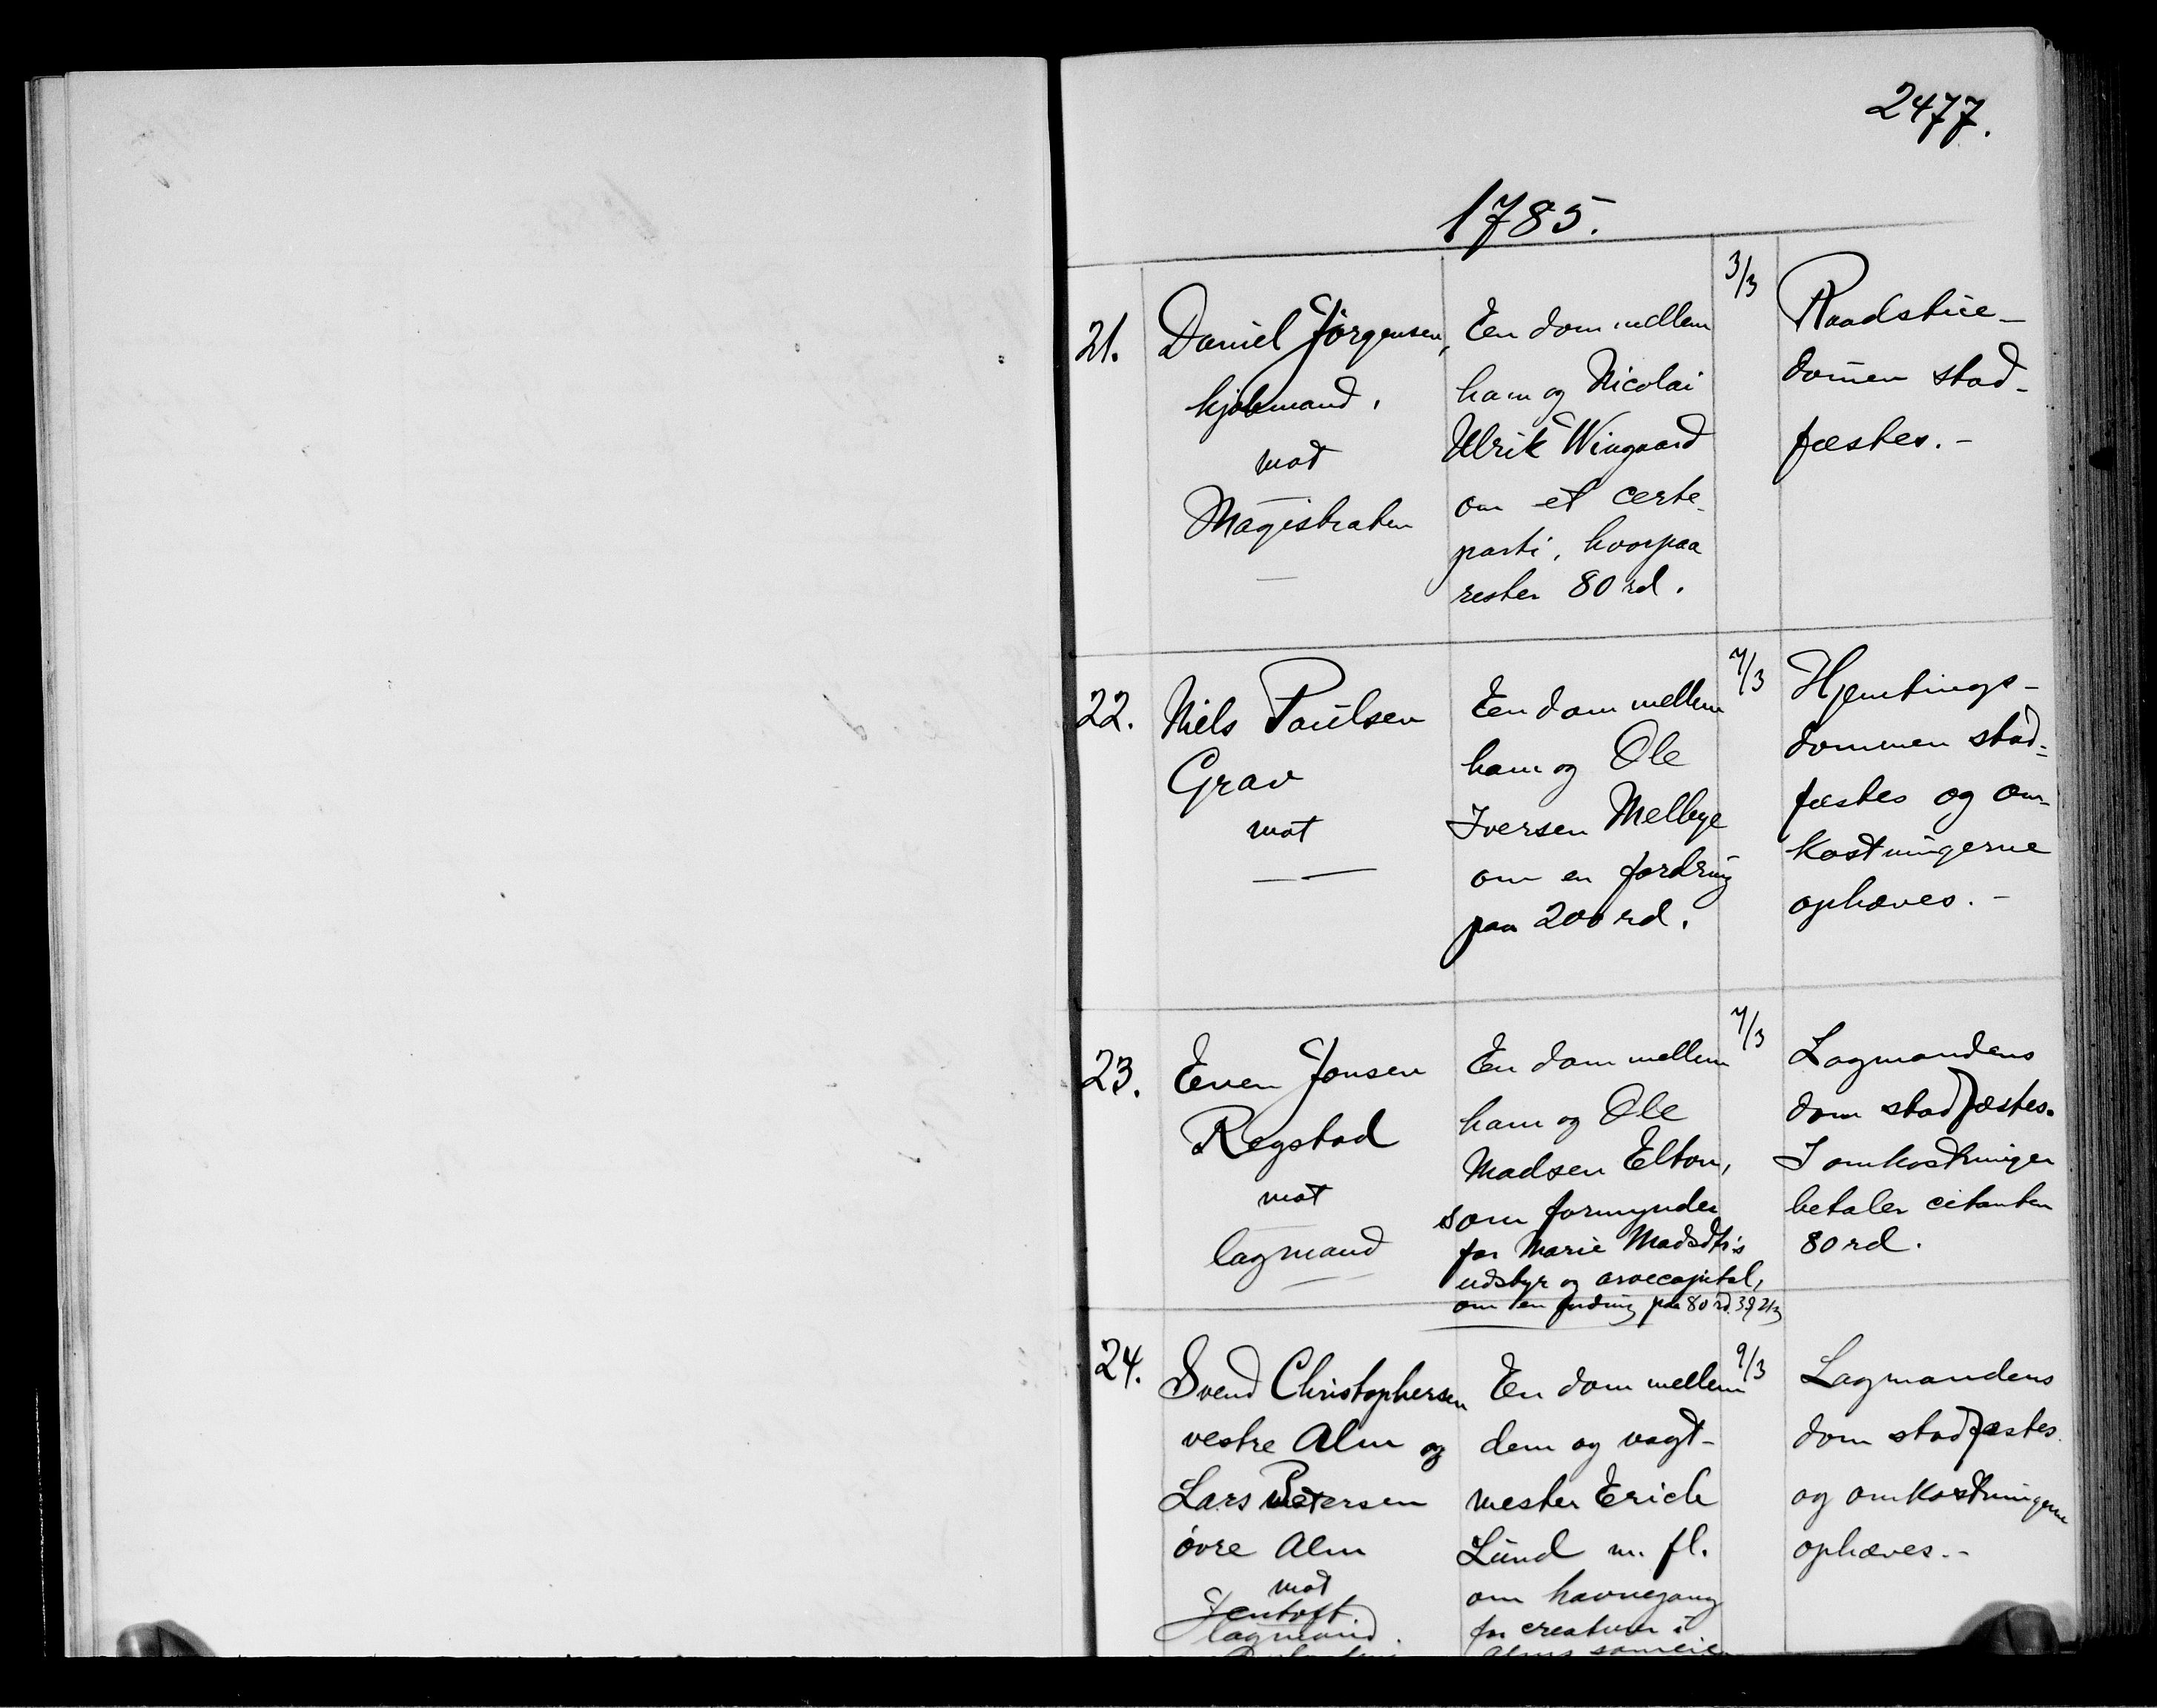 2477.
1785.
21.
Daniel Jörgensen,
kjøbmand,
mod
Magistraten
En dom mellem
ham og Nicolai
Ulrik Wingaard
om et certe-
parti, hvorpaa
rester 80 rd.
3/3
Raadstue-
domen stad-
fæstes.-
22.
Niels Paulsen
Grav
mot
En dom mellem
ham og Ole
Iversen Melbye
om en fordring
paa 200 rd.
7/3
Hjemtings-
dommen stad-
fæstes og om-
kostningerne
ophæves.-
23.
Even Jonsen
Regstad
mot
lagmand
En dom mellem
ham og Ole
Madsen Elton,
som formynder
for Marie Madsdtr's
udstyr og arvecapital,
om en fordring paa 80 rd.
7/3
Lagmandens
dom stadfæstes.
I omkostninger
betaler citanten
80 rd.
24.
Svend Christophersen
vestre Alm og
Lars Petersen
övre Alm
mod
Jentoft
lagmand.
En dom mellem
dem og vagt-
mester Erich
Lund m. fl.
om havnegang
for creaturer i
Alms sameie
9/3
Lagmandens
dom stadfæstes
og omkostningerne
ophæves.-